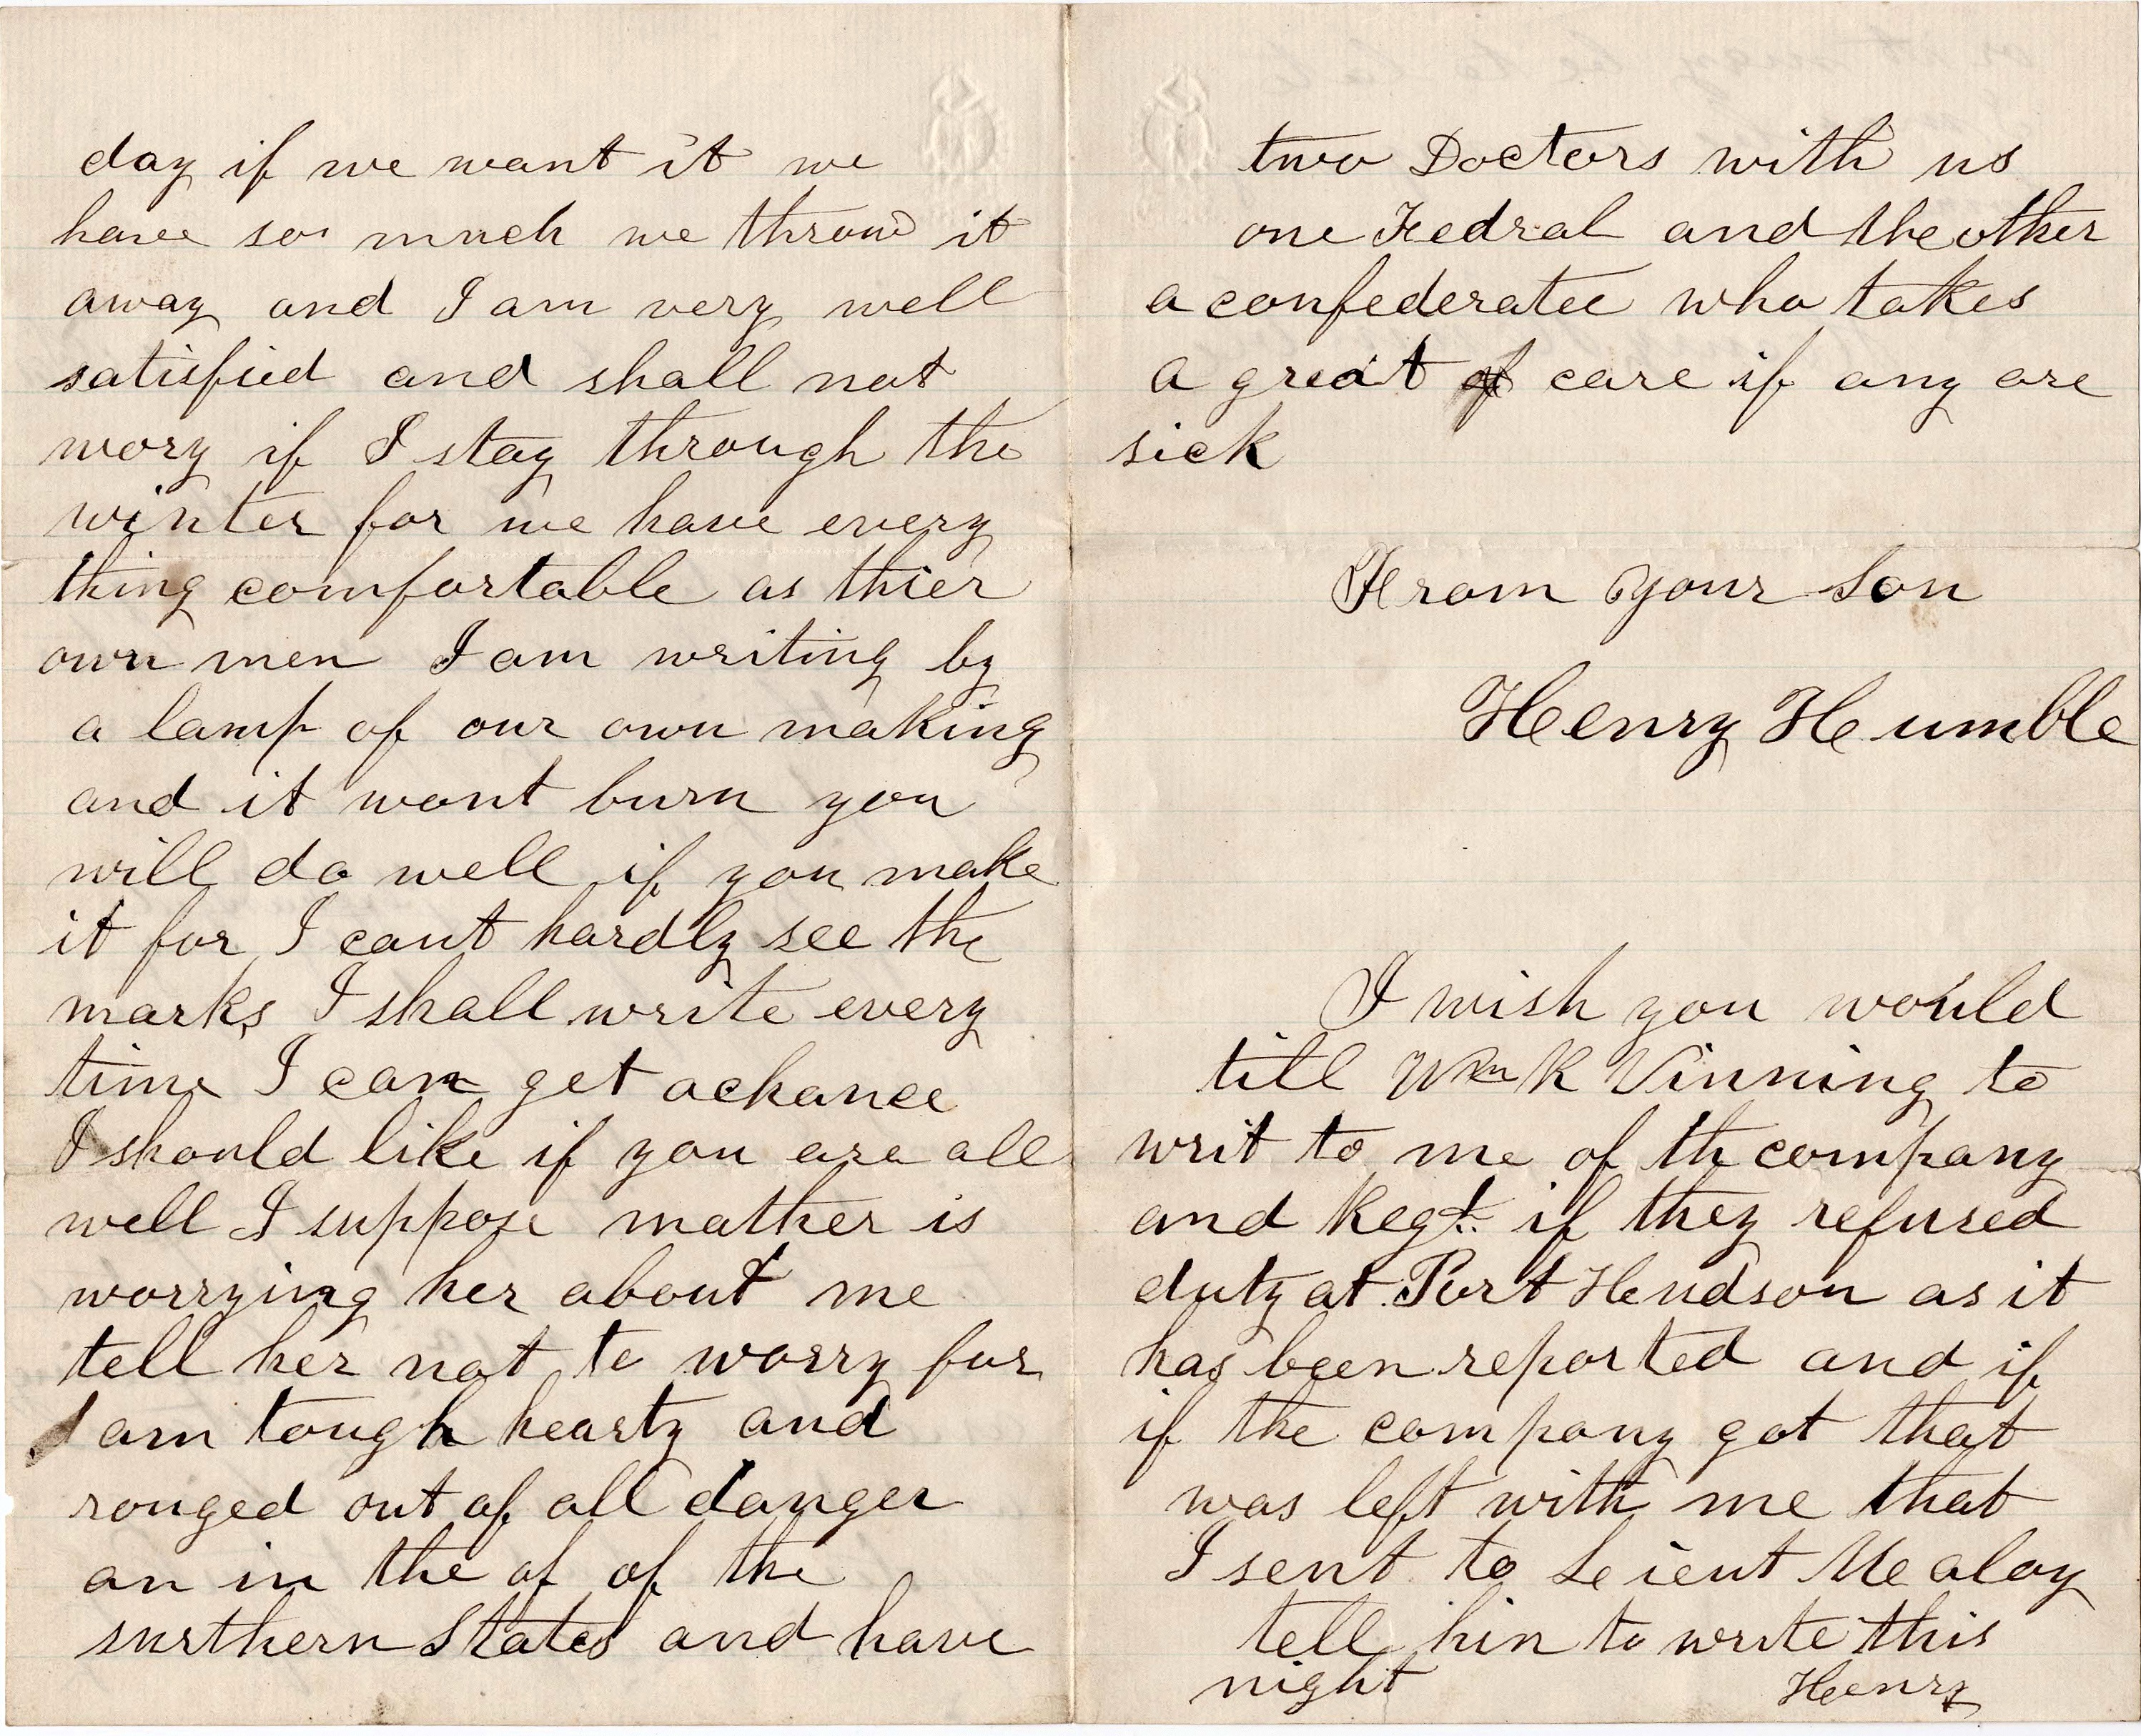 day if we want it we
have so much we throw it
away and I am very well
satisfied and shall not
wory if I stay through the
winter for we have every
thing comfortable as thier
own men I am writing by
a lamp of our own making
and it wont burn you
will do well if you make
it for I cant hardly see the
marks I shall write every
time I can get a chance
I should like if you are all
well I suppose mother is
worrying her about me
tell her not to worry for
I am tough hearty and
ronged out of all danger
an in the of of the
surthern States and have
two Doctors with us
one Fedral and the other
a confederatee who takes
a great care if any are
sick
From your Son
Henry Humble
I wish you would
till Wm K Vinning to
writ to me of th company
and Regt. if they refused
duty at Port Hudson as it
has been reported and if
if the company got that
was left with me that
I sent to Leient Mealoy
tell hin to write this
night Henry